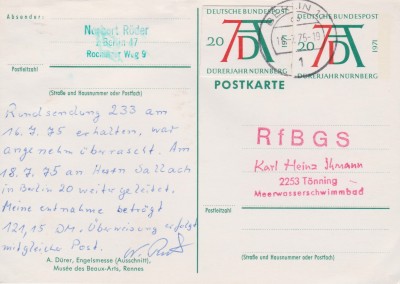 Absender:
Norbert Röder
1 Berlin 47
Rochauer Weg 9
Postleitzahl
(Straße und Hausnummer oder Postfach)
Rundsendung 233 am
16.7.75 erhalten, war
angenehm überrascht. Am
18.7.75 an Herrn Wallach
in Berlin 20 weitergeleitet.
Meine entnahme beträgt
121,15 DM. Überweisung erfolgt
mit gleicher Post.
A. Dürer, Engelsmesse (Ausschnitt),
Musée des Beaux-Arts, Rennes
DEUTSCHE BUNDESPOST
20
1971
DÜRERJAHR NÜRNBERG
DEUTSCHE BUNDESPOST
20
1971
DÜRERJAHR NÜRNBERG
BERLIN
POSTKARTE
RfBGS
Karl Heinz Ihmann
2253 Tönning
Meerwasserschwimmbad
Postleitzahl
(Straße und Hausnummer oder Postfach)